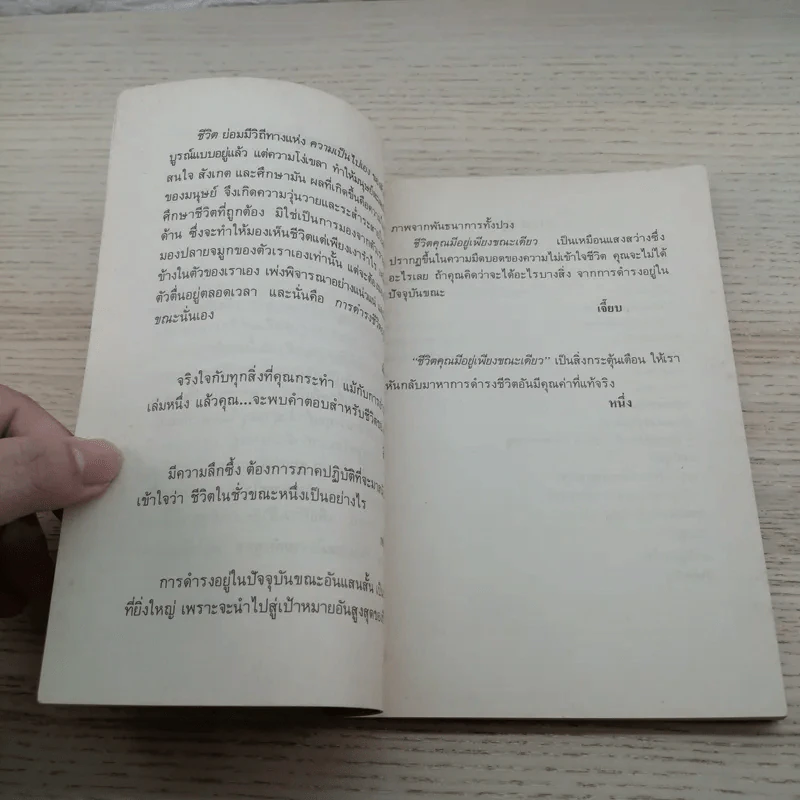 ชีวิต ย่อมมีวิถีทางแห่ง ความเป็นไปเอง
บูรณ์แบบอยู่แล้ว แต่ความโง่เขลา ทำให้มนุษย์
สนใจ สังเกต และศึกษามัน ผลที่เกิดขึ้นคือความ
ของมนุษย์ จึงเกิดความวุ่นวายและระส่ำระสาย
ศึกษาชีวิตที่ถูกต้อง มิใช่เป็นการมองจาก
ด้าน ซึ่งจะทำให้มองเห็นชีวิตแต่เพียงเงารำไร
มองปลายจมูกของตัวเราเองเท่านั้น แต่จะต้อง
ข้างในตัวของเราเอง เพ่งพิจารณาอย่างแน่วแน่
ตัวตื่นอยู่ตลอดเวลา และนั่นคือ การดำรงชีวิต
ขณะนั่นเอง
จริงใจกับทุกสิ่งที่คุณกระทำ แม้กับการ
เล่มหนึ่ง แล้วคุณ...จะพบคำตอบสำหรับชีวิต
มีความลึกซึ้ง ต้องการภาคปฏิบัติที่จะมา
เข้าใจว่า ชีวิตในชั่วขณะหนึ่งเป็นอย่างไร
การดำรงอยู่ในปัจจุบันขณะอันแสนสั้น
ที่ยิ่งใหญ่ เพราะจะนำไปสู่เป้าหมายอันสูงสุดของ
ภาพจากพันธนาการทั้งปวง
ชีวิตคุณมีอยู่เพียงขณะเดียว เป็นเหมือนแสงสว่างซึ่ง
ปรากฏขึ้นในความมืดบอดของความไม่เข้าใจชีวิต คุณจะไม่ได้
อะไรเลย ถ้าคุณคิดว่าจะได้อะไรบางสิ่ง จากการดำรงอยู่ใน
ปัจจุบันขณะ
เจี๊ยบ
“ชีวิตคุณมีอยู่เพียงขณะเดียว” เป็นสิ่งกระตุ้นเตือน ให้เรา
หันกลับมาหาการดำรงชีวิตอันมีคุณค่าที่แท้จริง
หนึ่ง